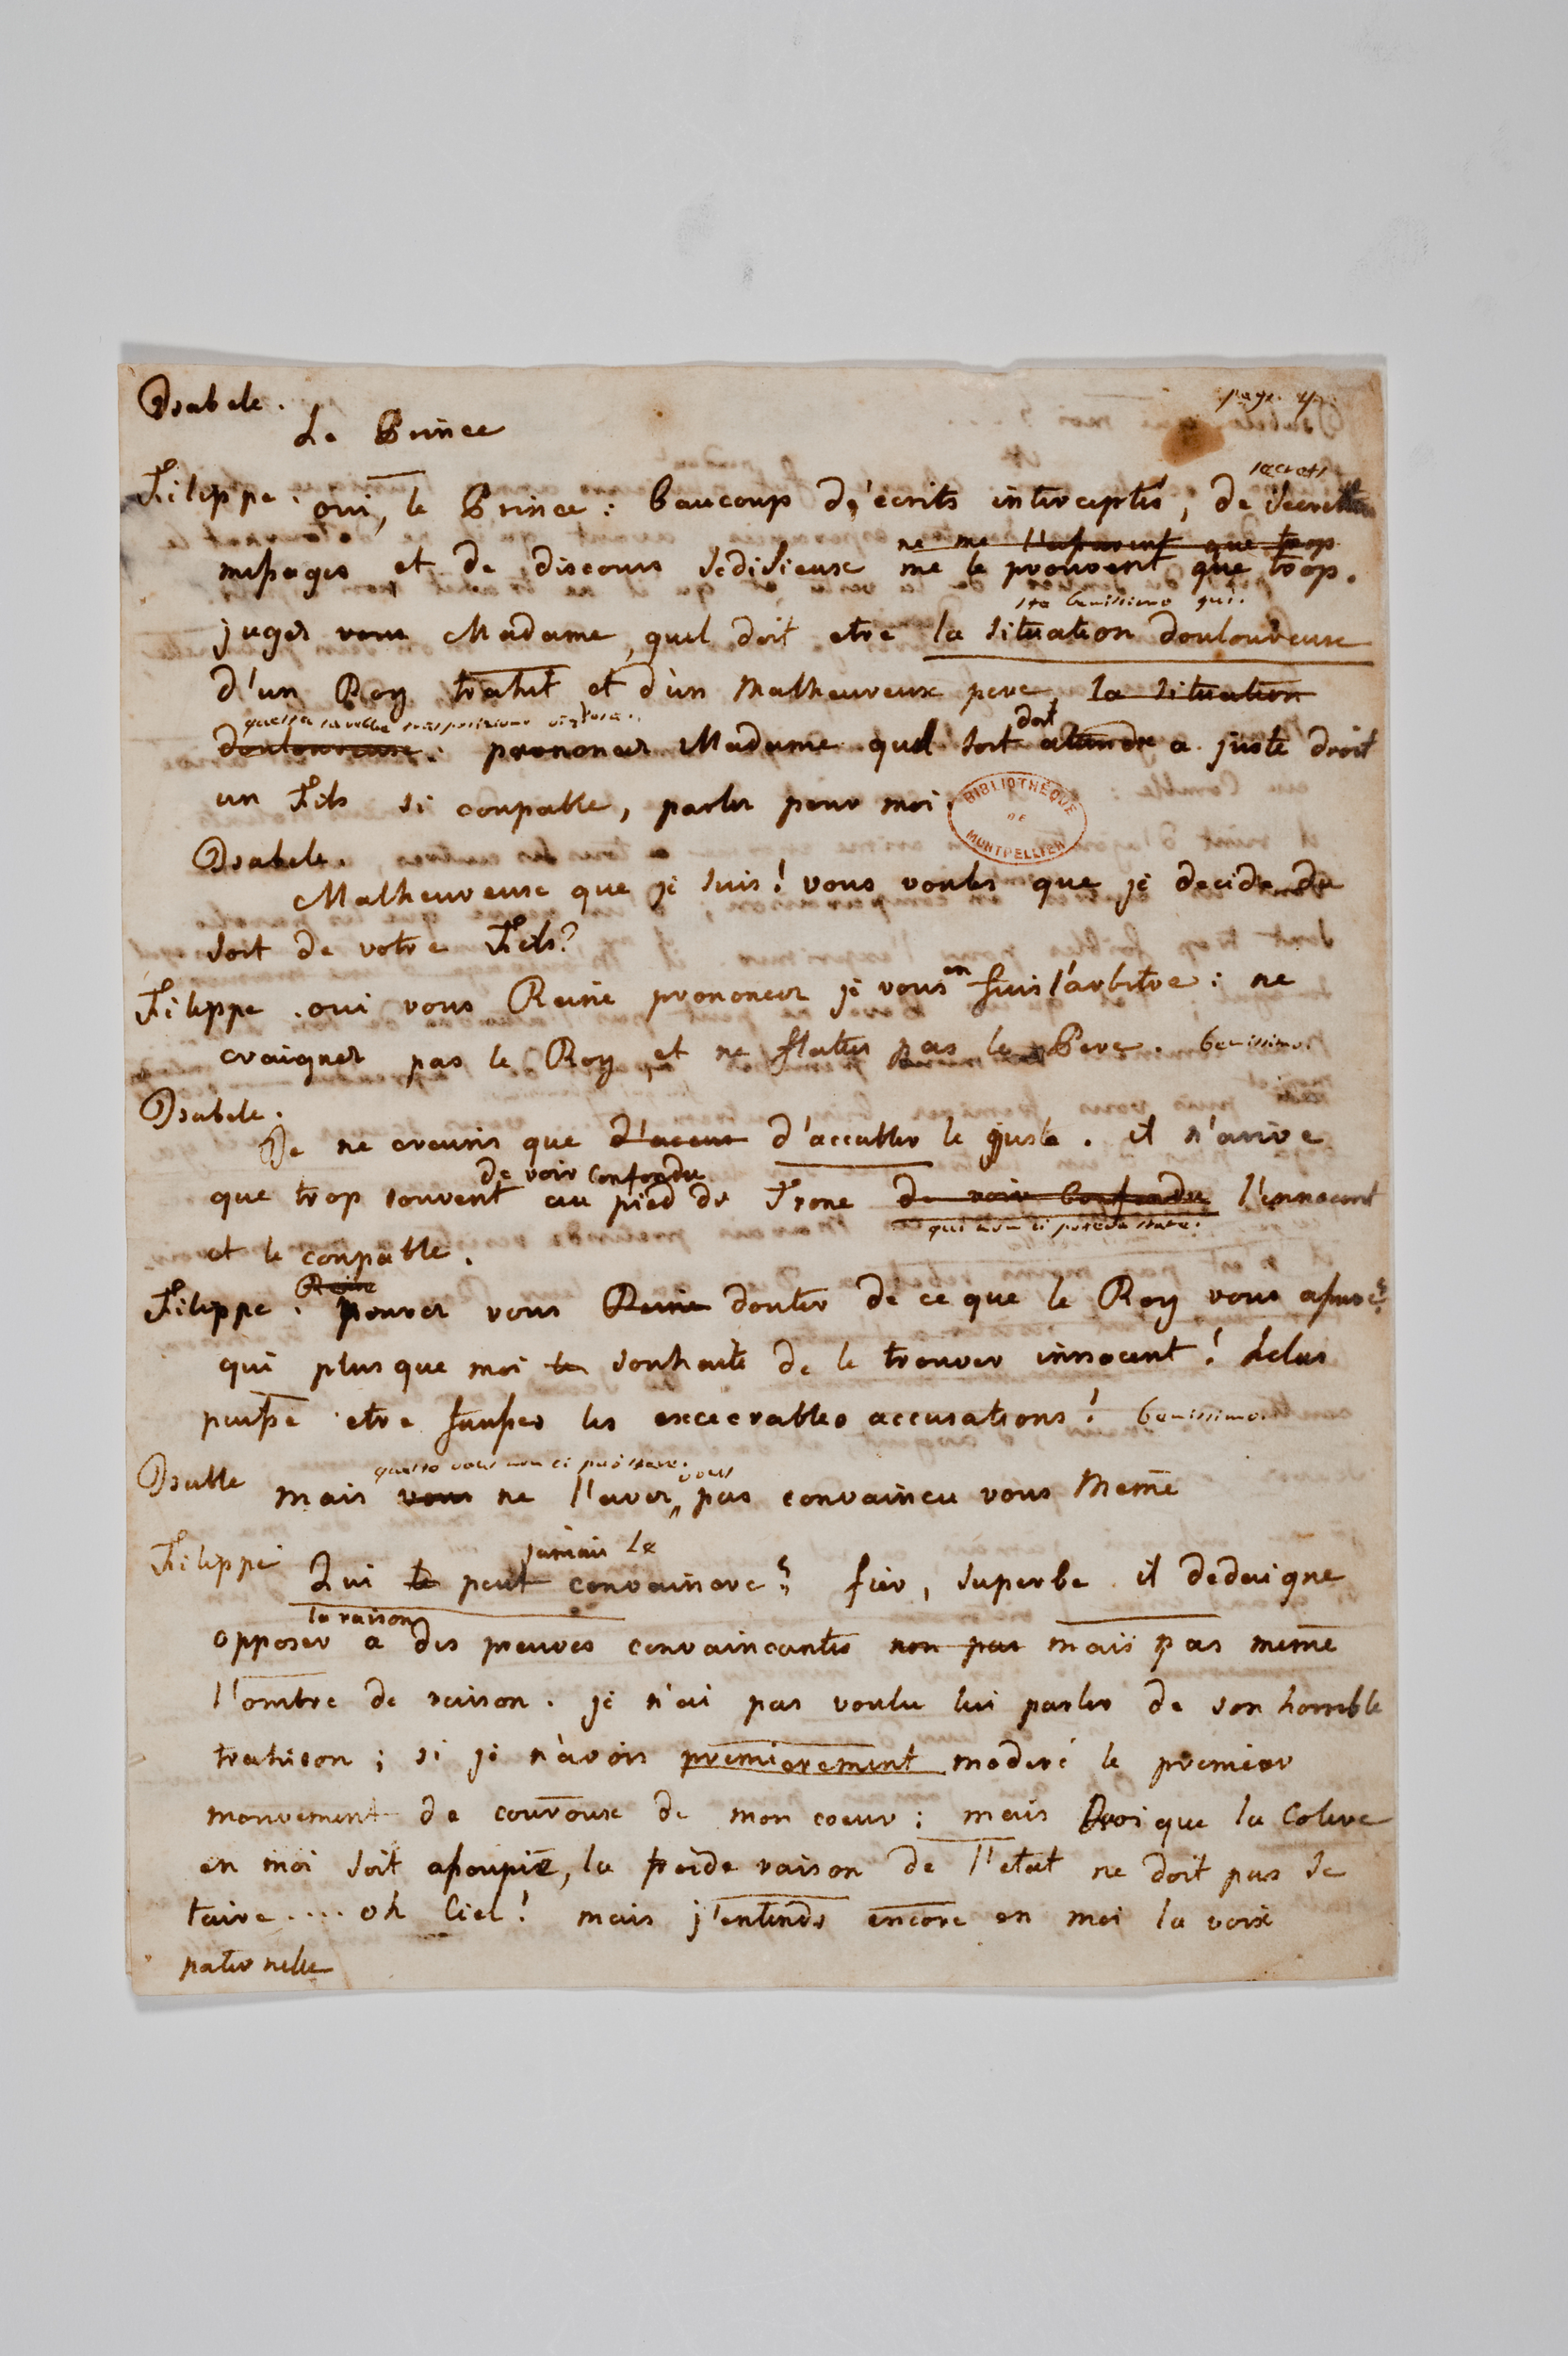 Isabele.
page. 4.
Le Prince
secrets
Filippe. oui, le Prince: baucoup d'écrits interceptés, de secrettes
ne me l'aprouvent que trop
messages et de discours sedisieux me le prouvent que trop.
sta benissimo qui.
juger vous Madame, quel doit etre la situation douloureuse
d'un Roy trahit et d'un Malheureux pere, la situation
doit
douloureuse. prononcer Madame quel sort atendre a juste droit
un Fils si coupable, parler pour moi.
BIBLIOTHÈQUE DE MONTPELLIER
Isabele.
Malheureuse que je suis! vous voules que je decide du
sort de votre Fils?
en
Filippe. oui vous Reine prononcer je vous fuis l'arbitre: ne
craigner pas le Roy et ne flater pas le Pere. benissimo.
Isabele.
Je ne creuris que d'accus d'accabler le juste. il n'arive
de voir confondu
que trop souvent au pied du Trone de voir confondu l'innocent
et le coupable.
Reine
Filippe. pouver vous Reine douter de ce que le Roy vous assure?
qui plus que moi le souhaite de le trouver innocent! helas
puisse etre fausses les excecrables accusations! benissimo.
questo vous non ci può stare. vous
Isabele mais vous ne l'aver pas convaincu vous Meme
jamais le
Filippe Qui le peut convaincre? fier, superbe il dedaigne
la raison
opposer a des preuves convaincantes non pas mais pas meme
l'ombre de raison. je n'ai pas voulu lui parler de son horrible
trahison; si je n'avois premierement moderé le premier
mouvement de courroux de mon coeur: mais quoi que la Colere
en moi soit assoupie, la froide raison de l'etat ne doit pas se
taire.... oh Ciel! mais j'entends encore en moi la voix
paternelle